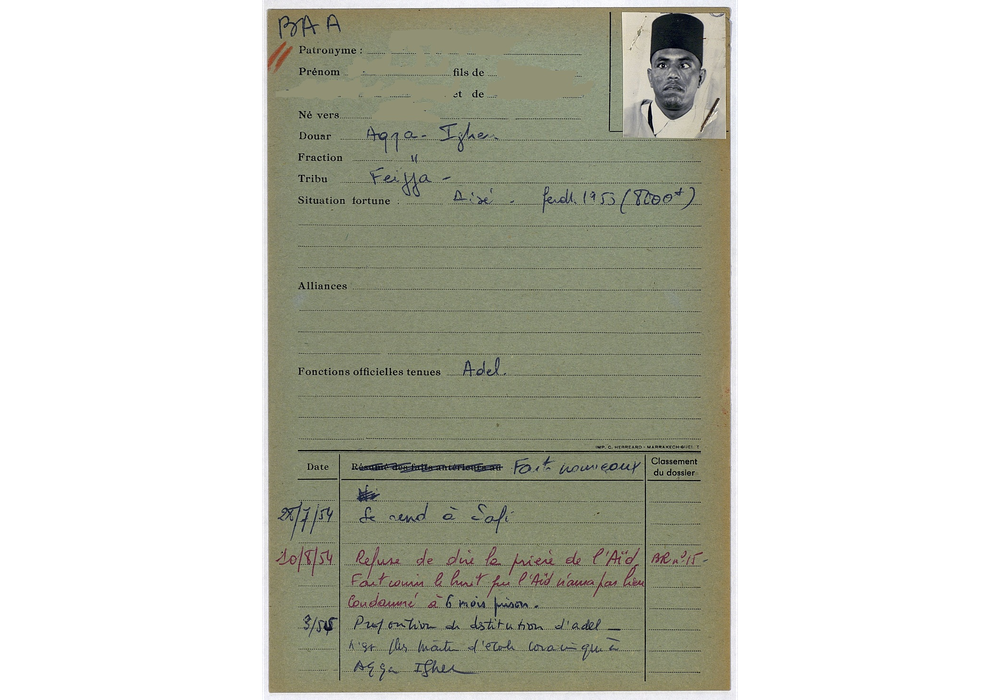 BAA
Patronyme :
Prénom fils de
et de
Né vers
Douar Aqqa - Igher
Fraction "
Tribu Feijja -
Situation fortune : Aisé . 1953 (8000
Alliances
Fonctions officielles tenues Adel.
IMP. C. HERREARD - MARRAKECH-GUÉLIZ
Date Résumé des faits antérieurs au Faits nouveaux Classement
du dossier
/7/54 Se rend à Safi
10/8/54 Refuse de dire la prière de l'Aïd BR n° 15 -
Fait courir le bruit que l'Aïd n'aura pas lieu
Condamné à 6 mois prison.
3/55 Proposition de destitution d'adel -
n'est plus maître d'école coranique à
Aqqa Igher